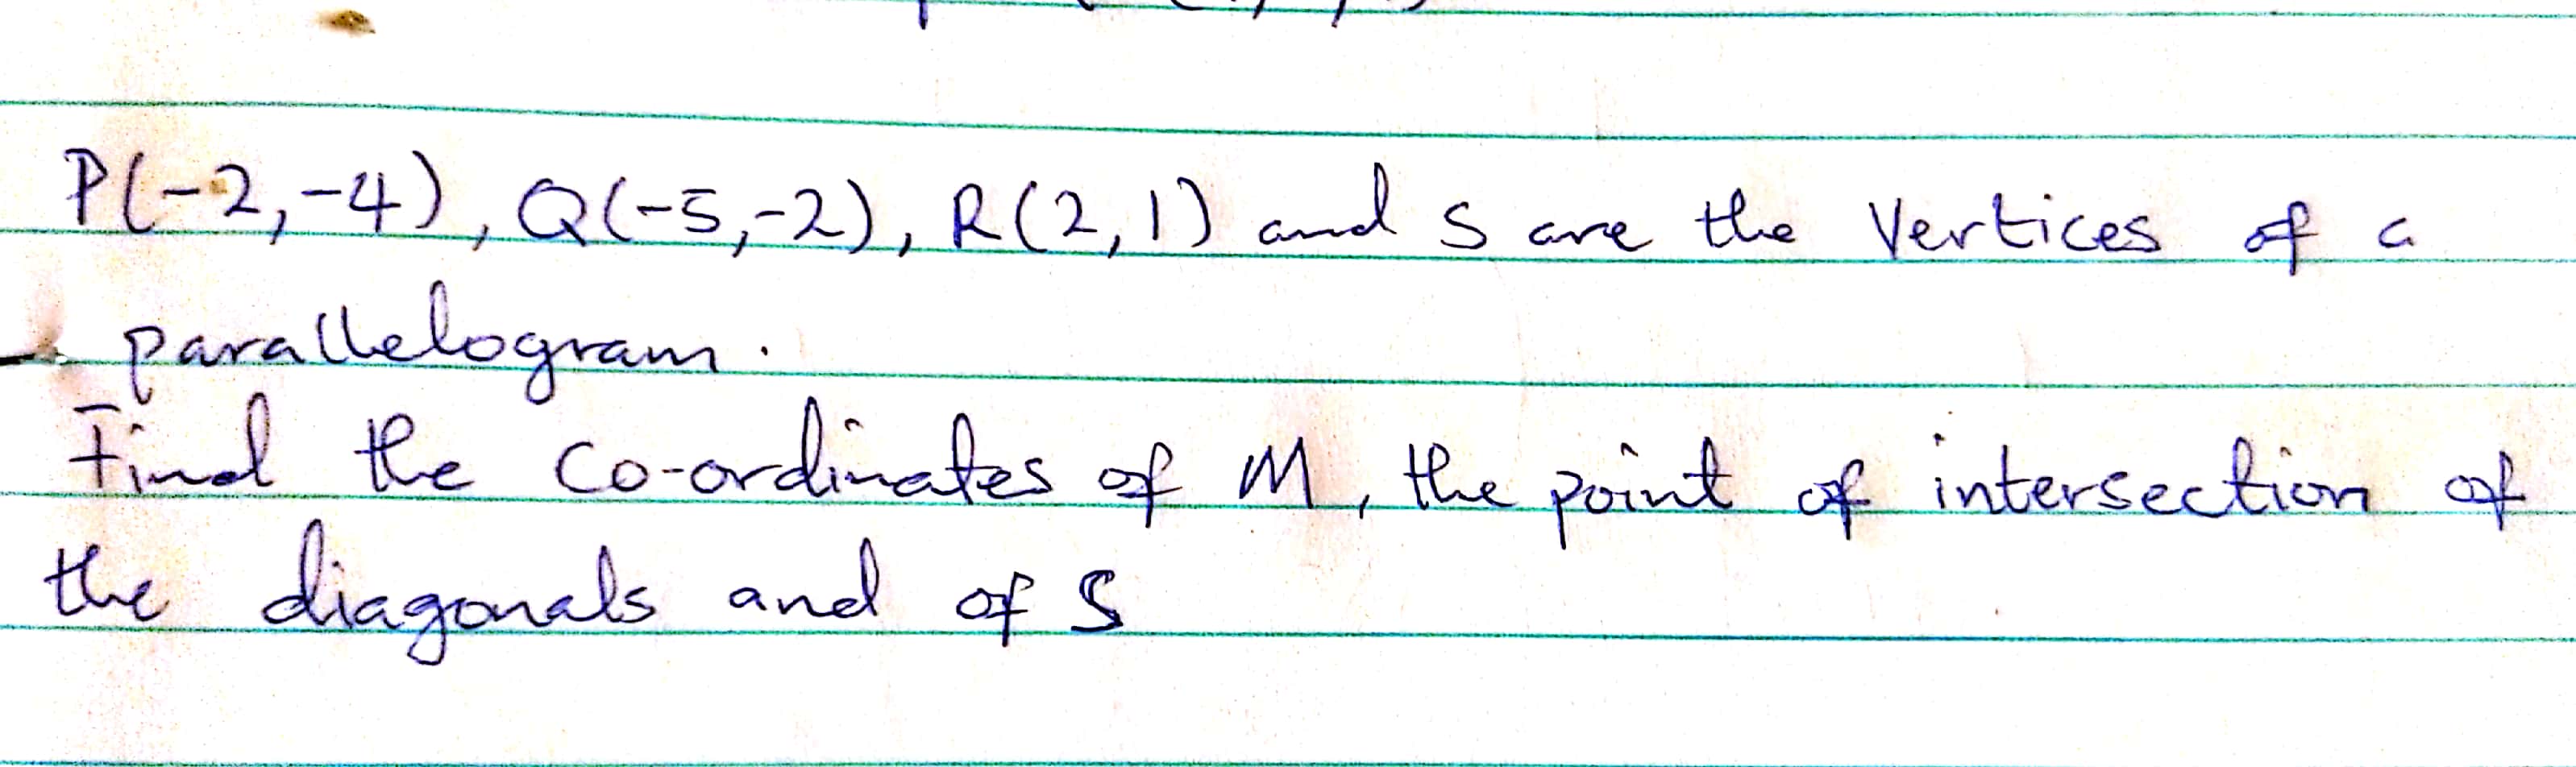 P(-2,-4), Q(-5,-2), R(2,1) and S are the vertices of a
parallelogram.
Find the co-ordinates of M, the point of intersection of
the diagonals and of S